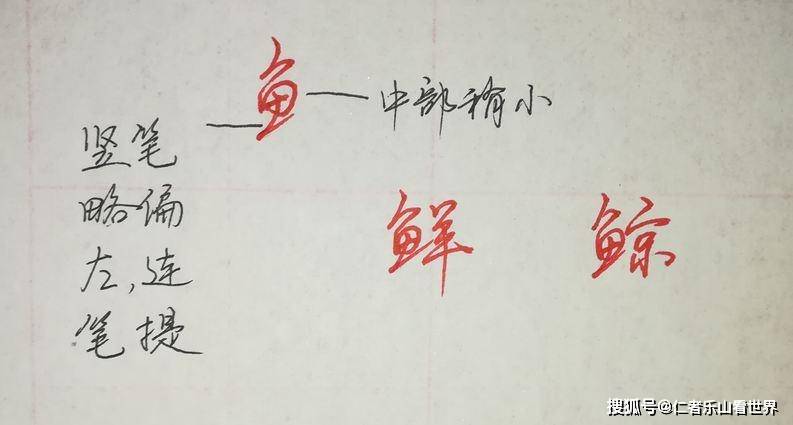 鱼 中部稍小
竖笔
略偏
左,连
笔提
鲜 鲸
搜狐号@仁者乐山看世界